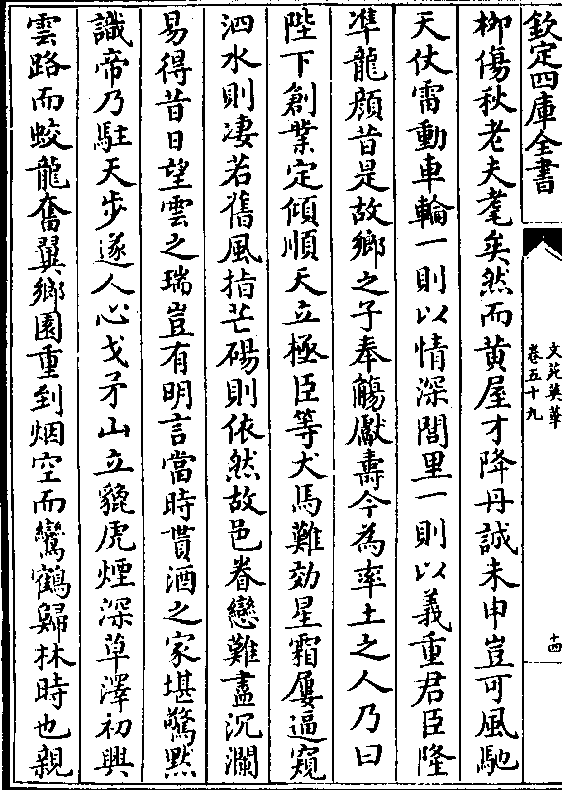 欽定四庫全書
文苑英華
卷五十九
十四
柳傷秋老夫耄矣然而黄屋才降丹誠未申豈可風馳
天仗雷動車輪一則以情深閭里一則以義重君臣隆
凖龍顔昔是故鄉之子奉觴獻壽今為率土之人乃曰
陛下創業定傾順天立極臣等犬馬難効星霜屢逼窺
泗水則凄若舊風指芒碭則依然故邑眷戀難盡沉瀾
易得昔日望雲之瑞豈有明言當時貰酒之家堪驚黙
識帝乃駐天步遂人心戈矛山立貔虎煙深草澤初興
雲路而蛟龍奮翼鄉園重到烟空而鸞鶴歸林時也親